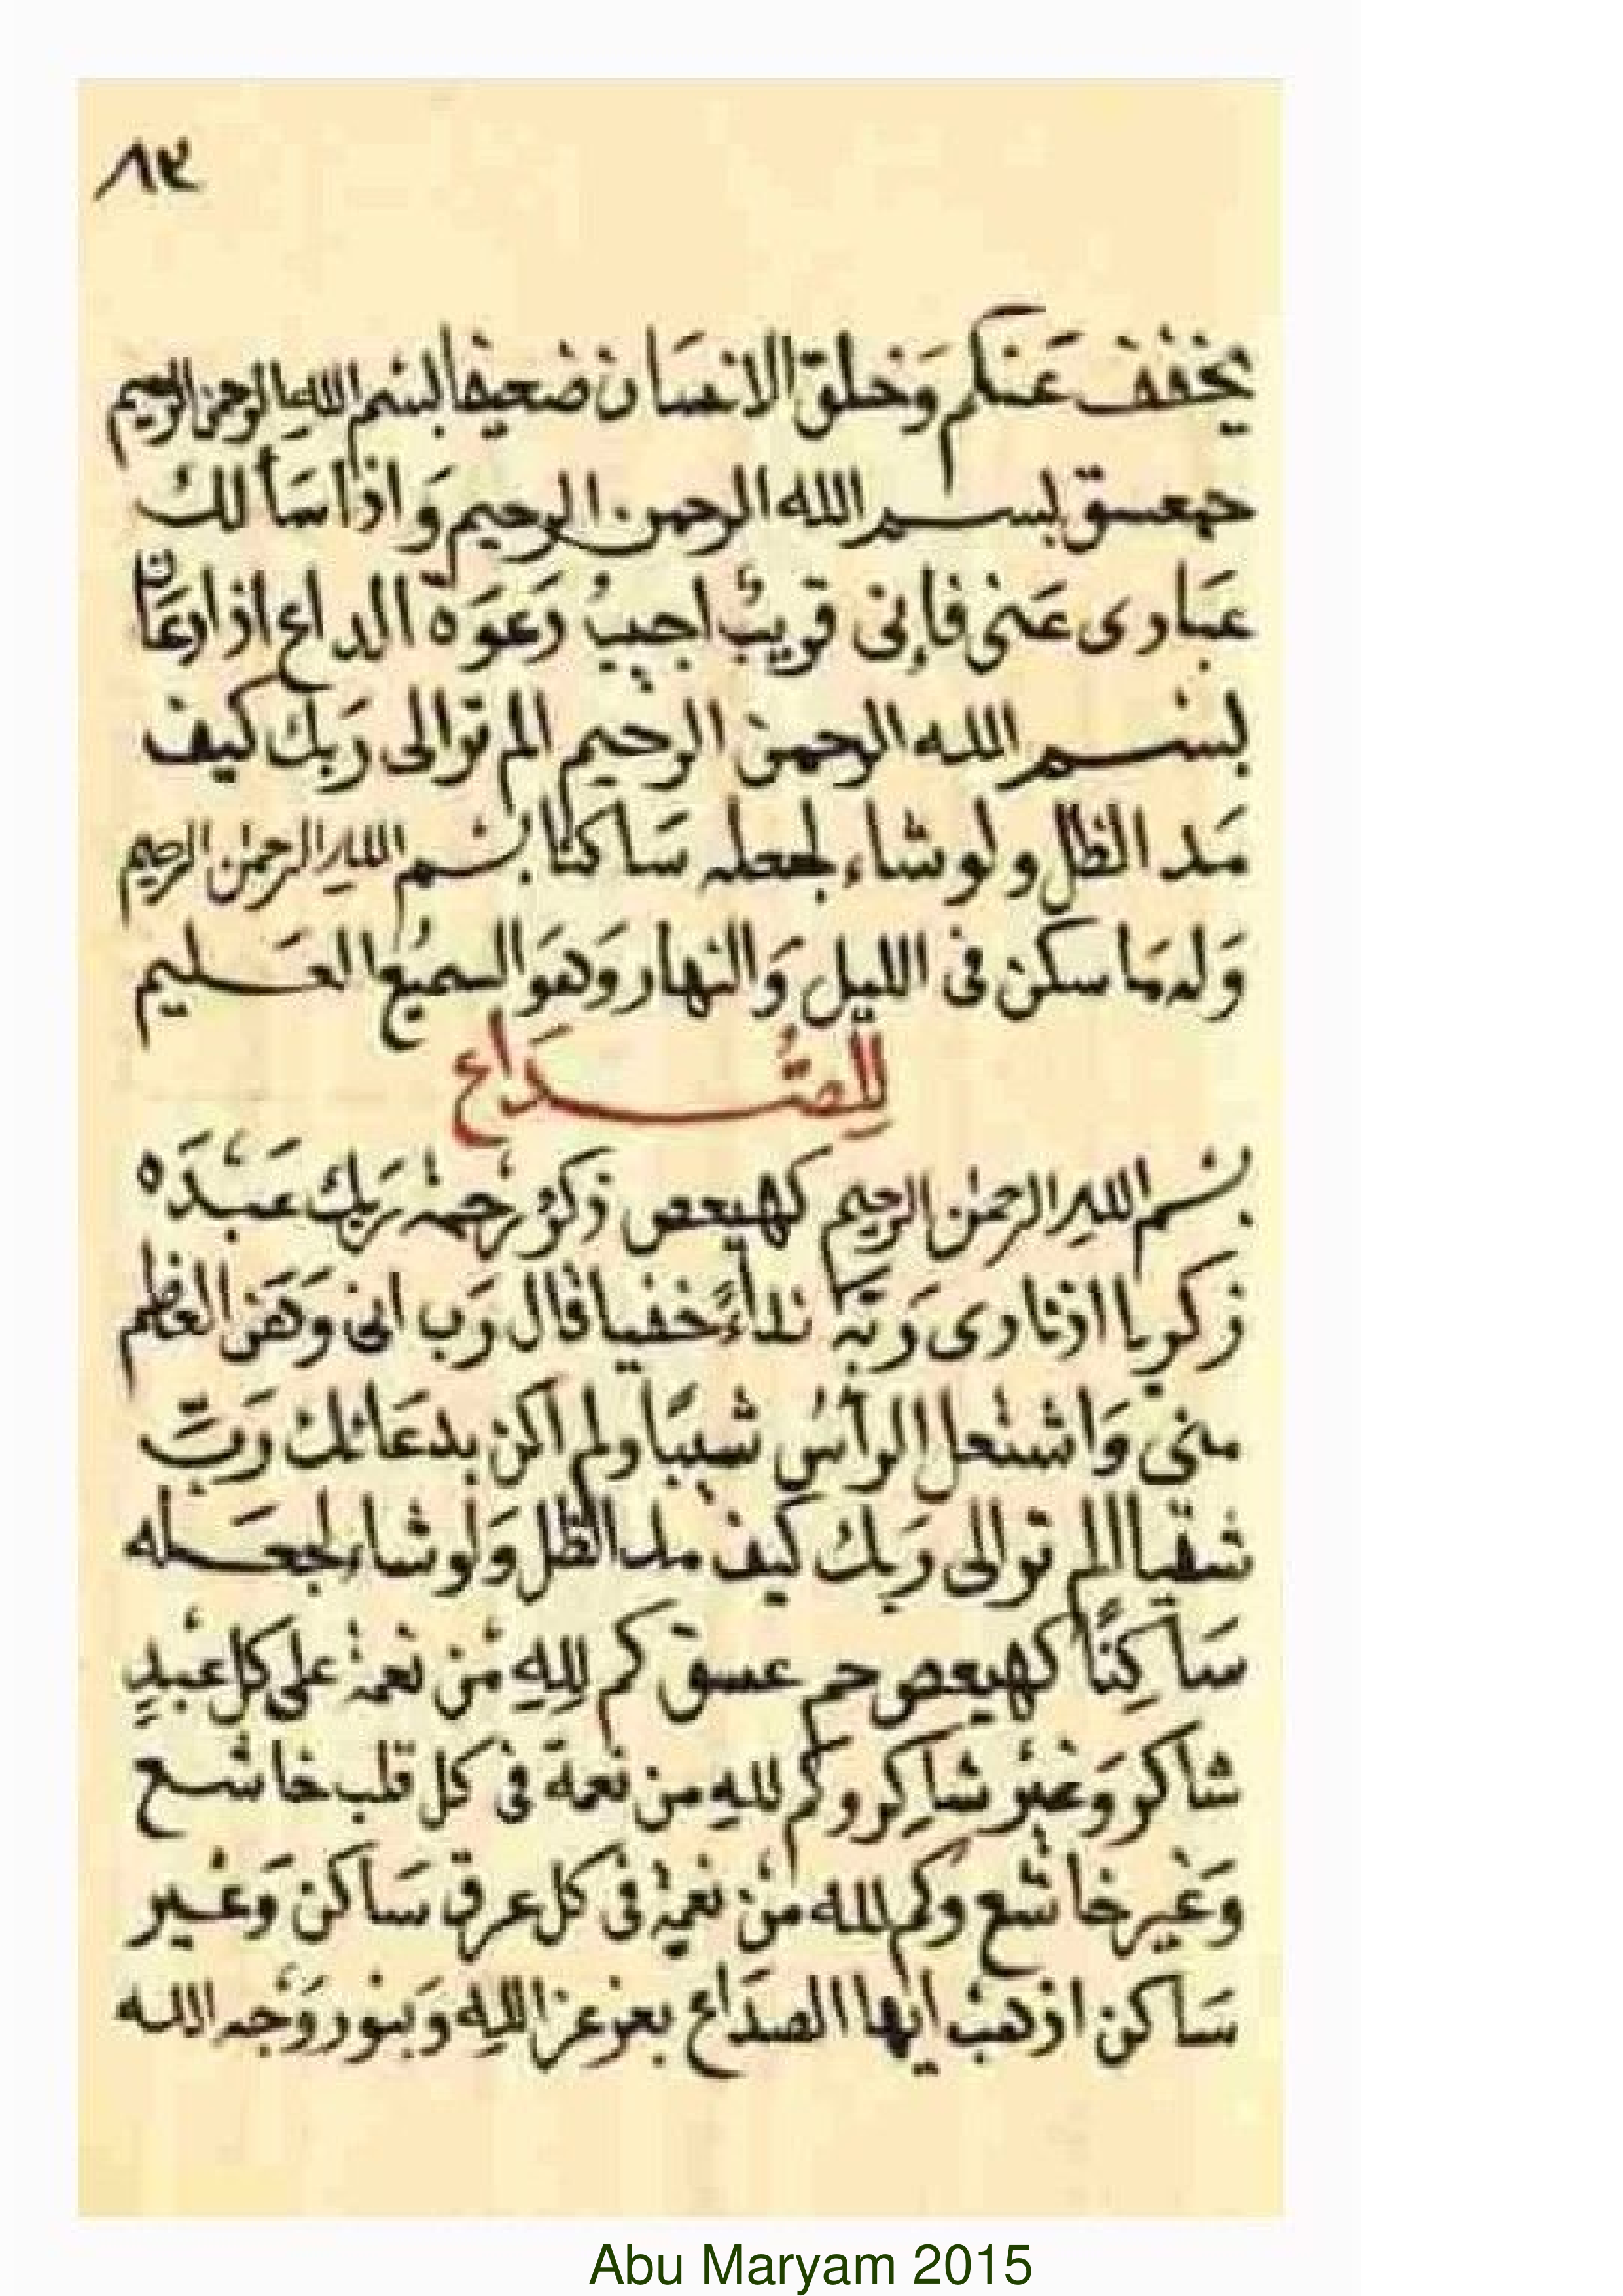 ٨٣
يخفف عنكم وَخلق الانسَان ضعيفا بسْم الله الرحمن الرحيم
حمعسق بسم الله الرحمن الرحيم وَاذا سَأ لك
عبَادى عَنى فإنى قريبٌ اجيبُ دَعوَة الداع اذا دعَانِ
بسْم الله الرحمن الرحيم الم تر الى رَبك كيف
مَد الظل ولو شاء لجعله سَاكنا بسْم الله الرحمن الرحيم
وَله مَا سكن فى الليل وَالنهار وَهوَ السميعُ العَليم
للصُّدَاع
بسْم اللهِ الرحمٰن الرحيم كهيعص ذكرُ رَحمة رَبك عَبْدَه
زكريا اذ نادى رَبّه نداءً خفيا قال رَب انى وَهَن العظم
منى وَاشتعل الرأسُ شيبًا ولم اكن بدعَائك رَبّ
شقيا الم تر الى رَبك كيف مد الظل وَلو شاء لجعَله
سَاكِنًا كهيعص حم عسق كم للهِ مْن نعمة على كل عَبدٍ
شاكر وَغيْر شاكِر وكم للهِ من نعمة فى كل قلب خاشع
وَغير خاشع وكم لله منْ نعمة فى كل عرق سَاكن وَغير
سَاكن اذهبْ ايها الصدَاع بعز عز اللهِ وَبنور وَجه الله
Abu Maryam 2015